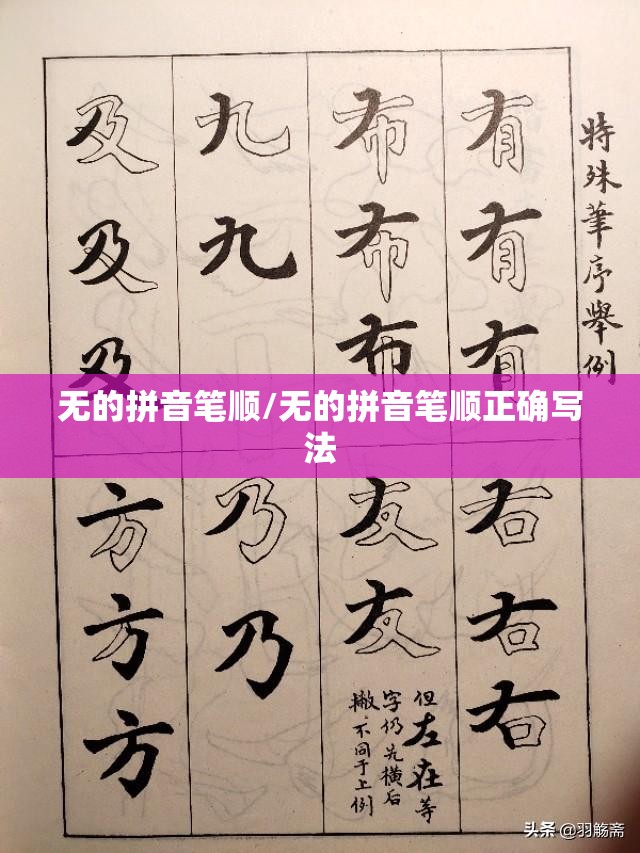 特殊筆序舉例
有
有
有
布
布
布
九
九
及
及
及
无的拼音笔顺/无的拼音笔顺正确写
法
右
右
右
友
友
但左在等
字仍先橫后
撇、不同于上例
乃
乃
方
方
方
头条 @羽觞斋